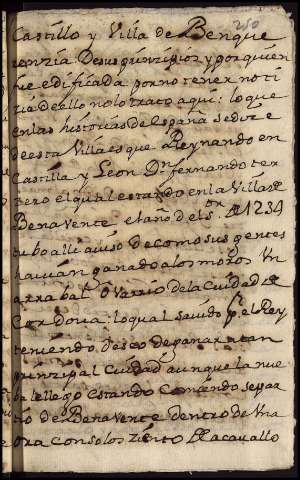 250
Castillo y Villa de Benque
renzia De sus prinzipios y por quien
fue edificada por no tener noti
zia de ello no lo trato aqui: lo que
en las historias de España se dize
de esta Villa es que Reynando en
Castilla y Leon Dn fernando ter
zero el qual estando en la Villa de
Benavente el año del Sor de 1234
tubo alli aviso de como sus gentes
havian ganado a los moros Un
arrabal o Varrio de la Ciudad de
Cordova: lo qual savido pr el Rey
teniendo deseo de ganar a tan
prinzipal Ciudad aunque la nue
ba le llego estando Comiendo se par
tio de Benavente dentro de Una
ora con solos ziento de acavallo